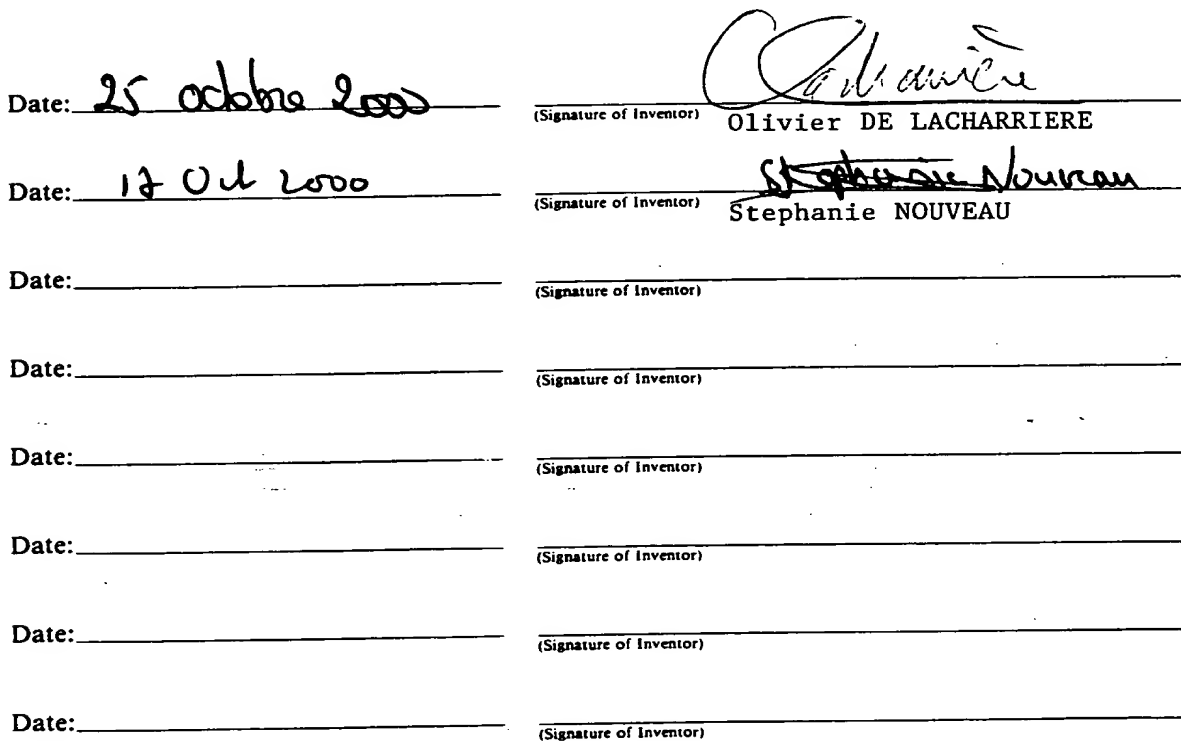 Date: 25 octobre 2000 Lacharrière
(Signature of Inventor) Olivier DE LACHARRIERE
Date: 17 Oct 2000 Stephanie Nouveau
(Signature of Inventor) Stephanie NOUVEAU
Date:
(Signature of Inventor)
Date:
(Signature of Inventor)
Date:
(Signature of Inventor)
Date:
(Signature of Inventor)
Date:
(Signature of Inventor)
Date:
(Signature of Inventor)